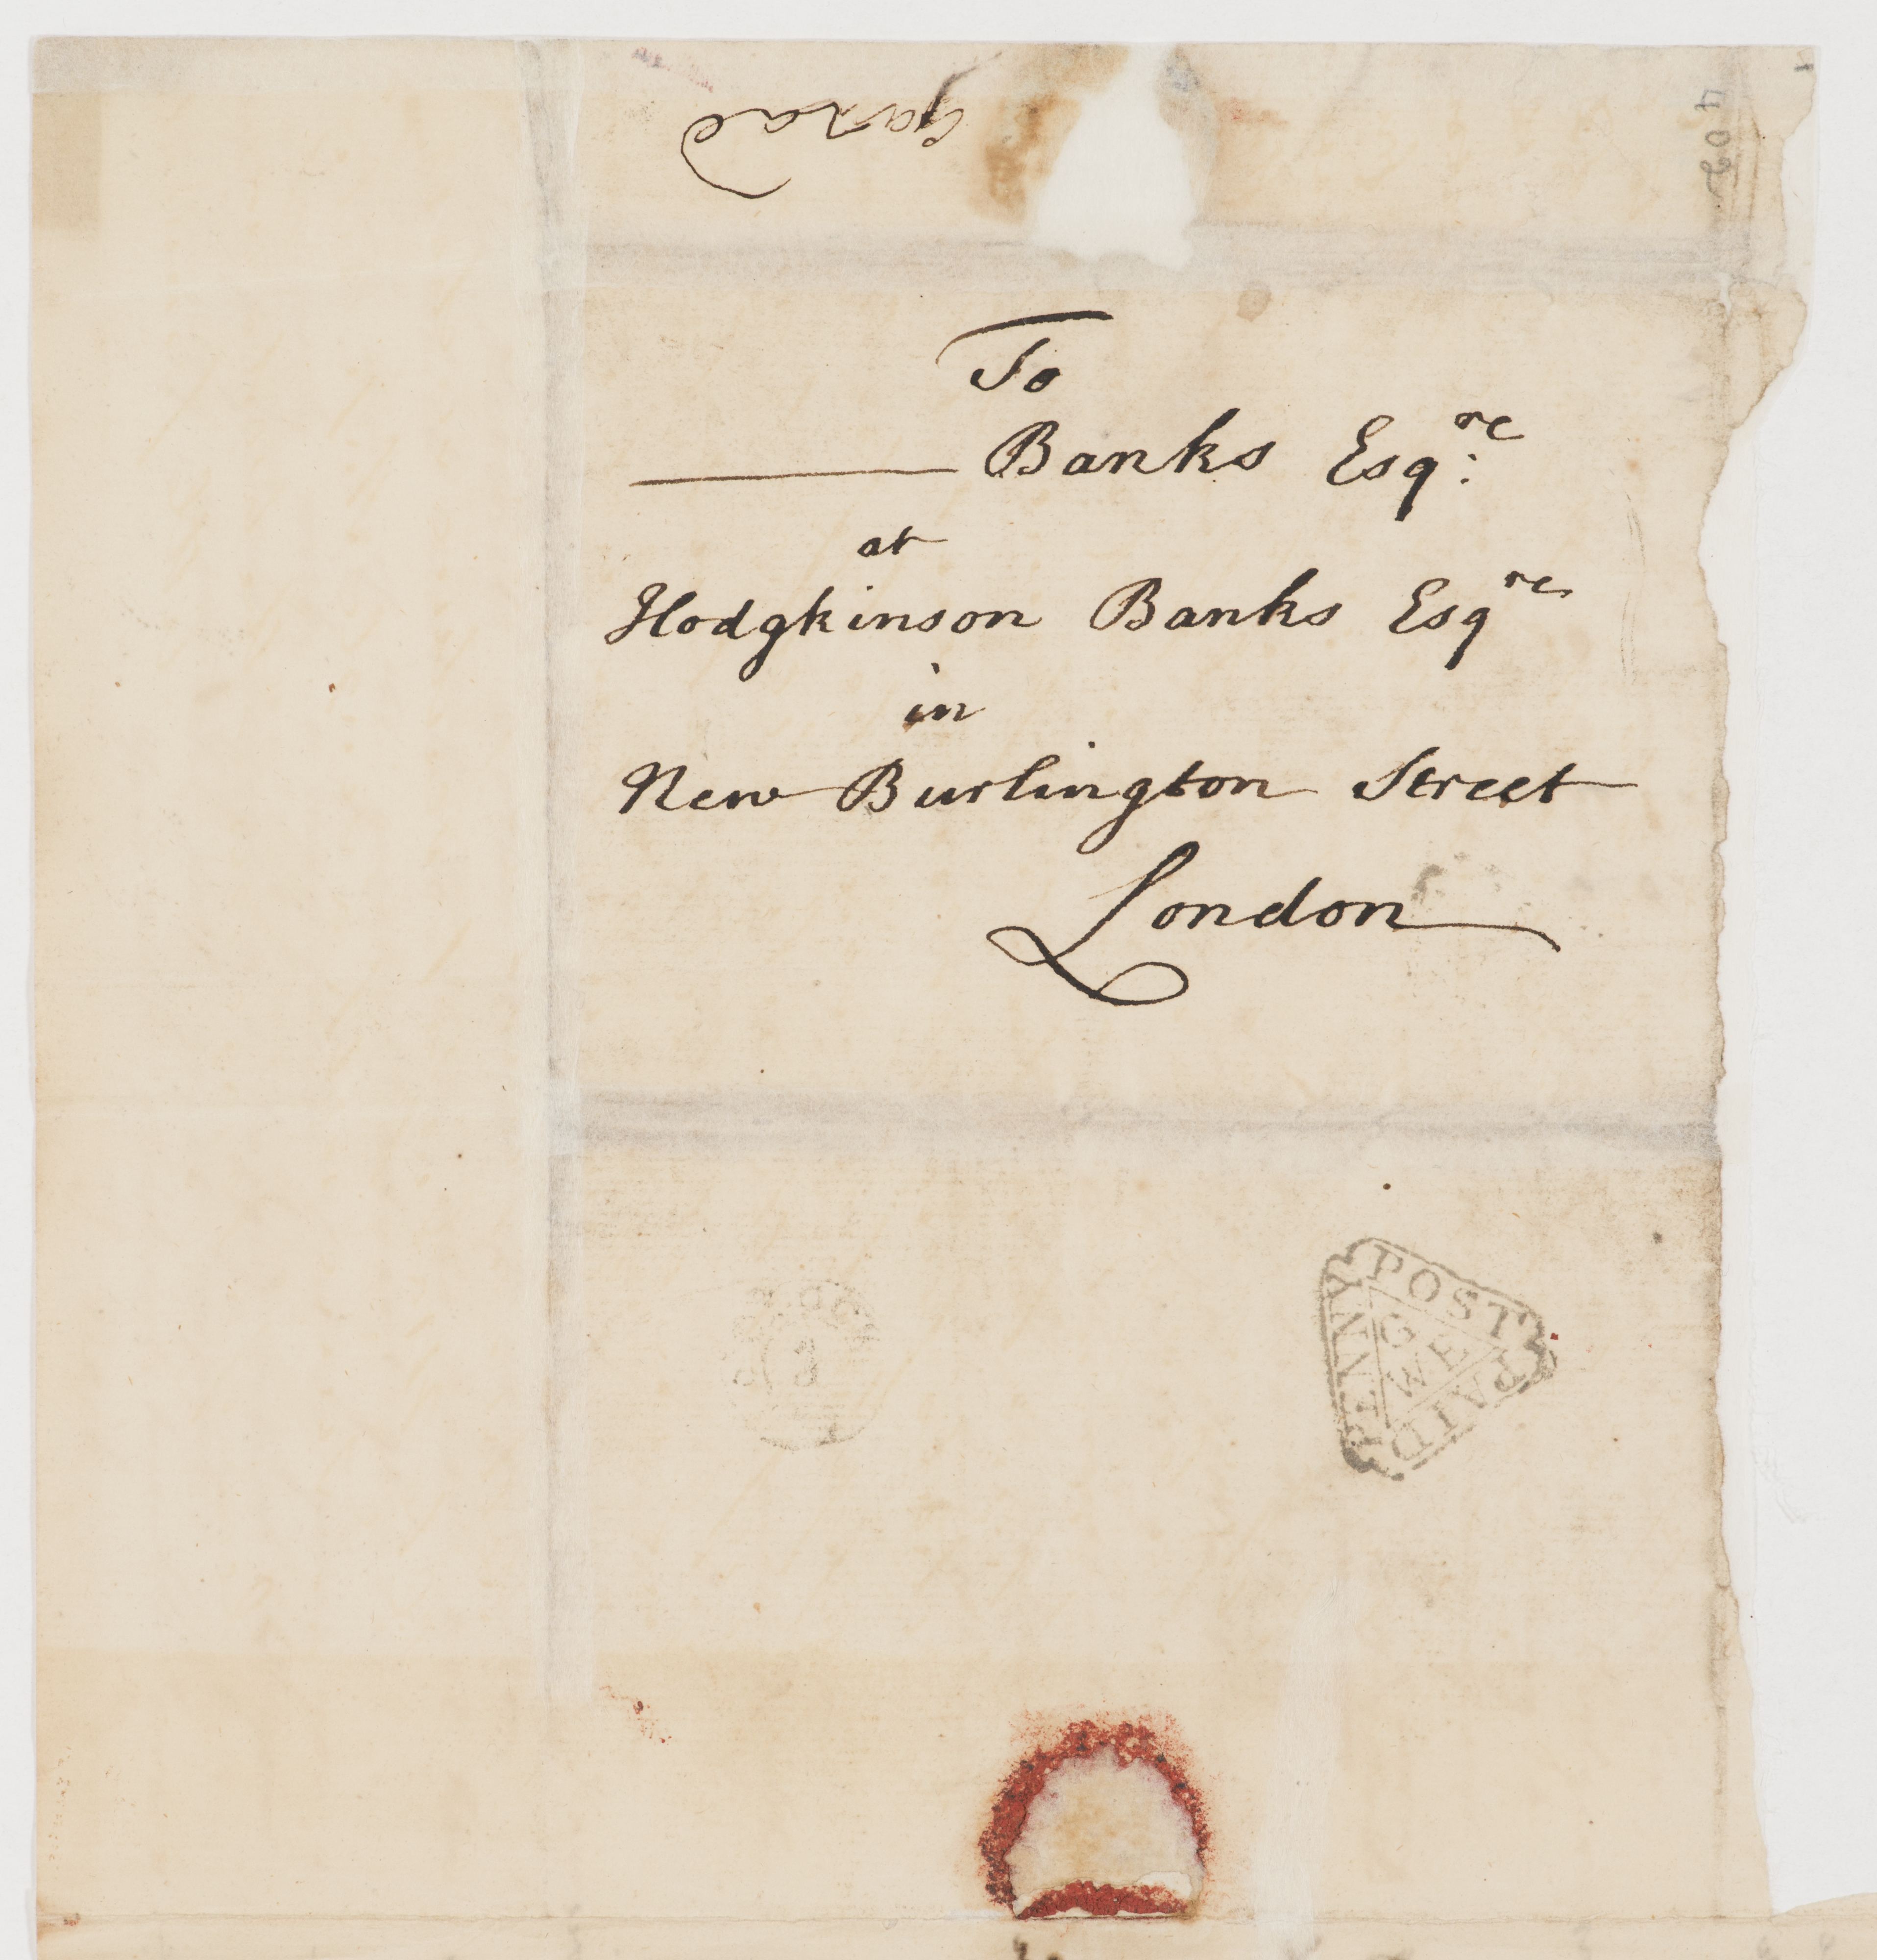 402
To
Banks Esqre:
at
Hodgkinson Banks Esqre
in
New Burlington Street
London
PENNY POST PAID
G
WE